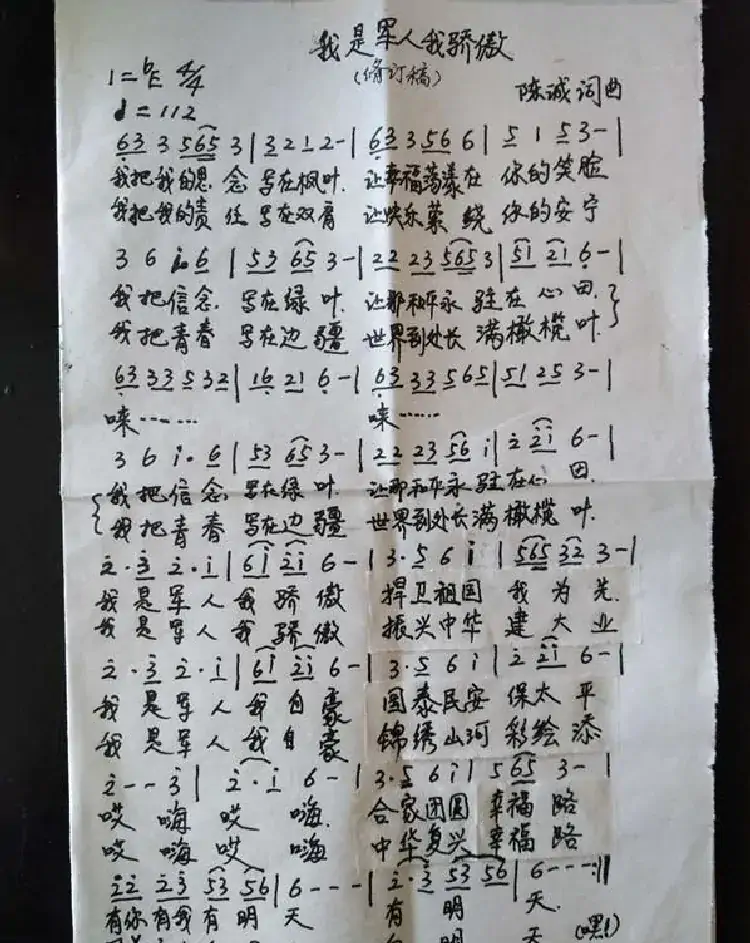 我是军人我骄傲
(修订稿)
1=bE 4/4
陈诚词曲
♩=112
63 3 565 3 | 3 2 1 2 - | 63 3 56 6 | 5 1 5 3 - |
我把我的思 念 写在枫叶. 让幸福荡漾在 你的笑脸
我把我的责 任 写在双肩 让快乐萦绕 你的安宁
3 6 i. 6 | 53 65 3 - | 22 23 565 3 | 51 21 6 - |
我把信念. 写在绿叶. 让那和平永驻在心田.
我把青春 写在边疆 世界到处长满橄榄叶.
63 33 5 32 | 16 21 6 - | 63 33 565 | 51 25 3 - |
唻…… 唻……
3 6 i. 6 | 53 65 3 - | 22 23 56 i | 2 2i 6 - |
我把信念. 写在绿叶. 让那和平永驻在心田.
我把青春 写在边疆 世界到处长满橄榄叶.
2. 3 2. i | 6i 2i 6 - | 3. 5 6 i | 565 32 3 - |
我是军人我骄傲 捍卫祖国 我为先.
我是军人我骄傲 振兴中华 建大业
2. 3 2. i | 6i 2i 6 - | 3. 5 6 i | 2 2i 6 - |
我是军人我自豪 国泰民安 保太平
我是军人我自豪 锦绣山河 彩绘添
2 - - 3 | 2. i 6 - | 3. 5 6 i | 5 65 3 - |
哎 嗨 哎 嗨. 合家团圆 幸福路
哎 嗨 哎 嗨 中华复兴 幸福路
22 23 53 56 | 6 - - - | 2. 3 53 56 | 6 - - - :||
有你有我有明天 有明天.
(嘿!)